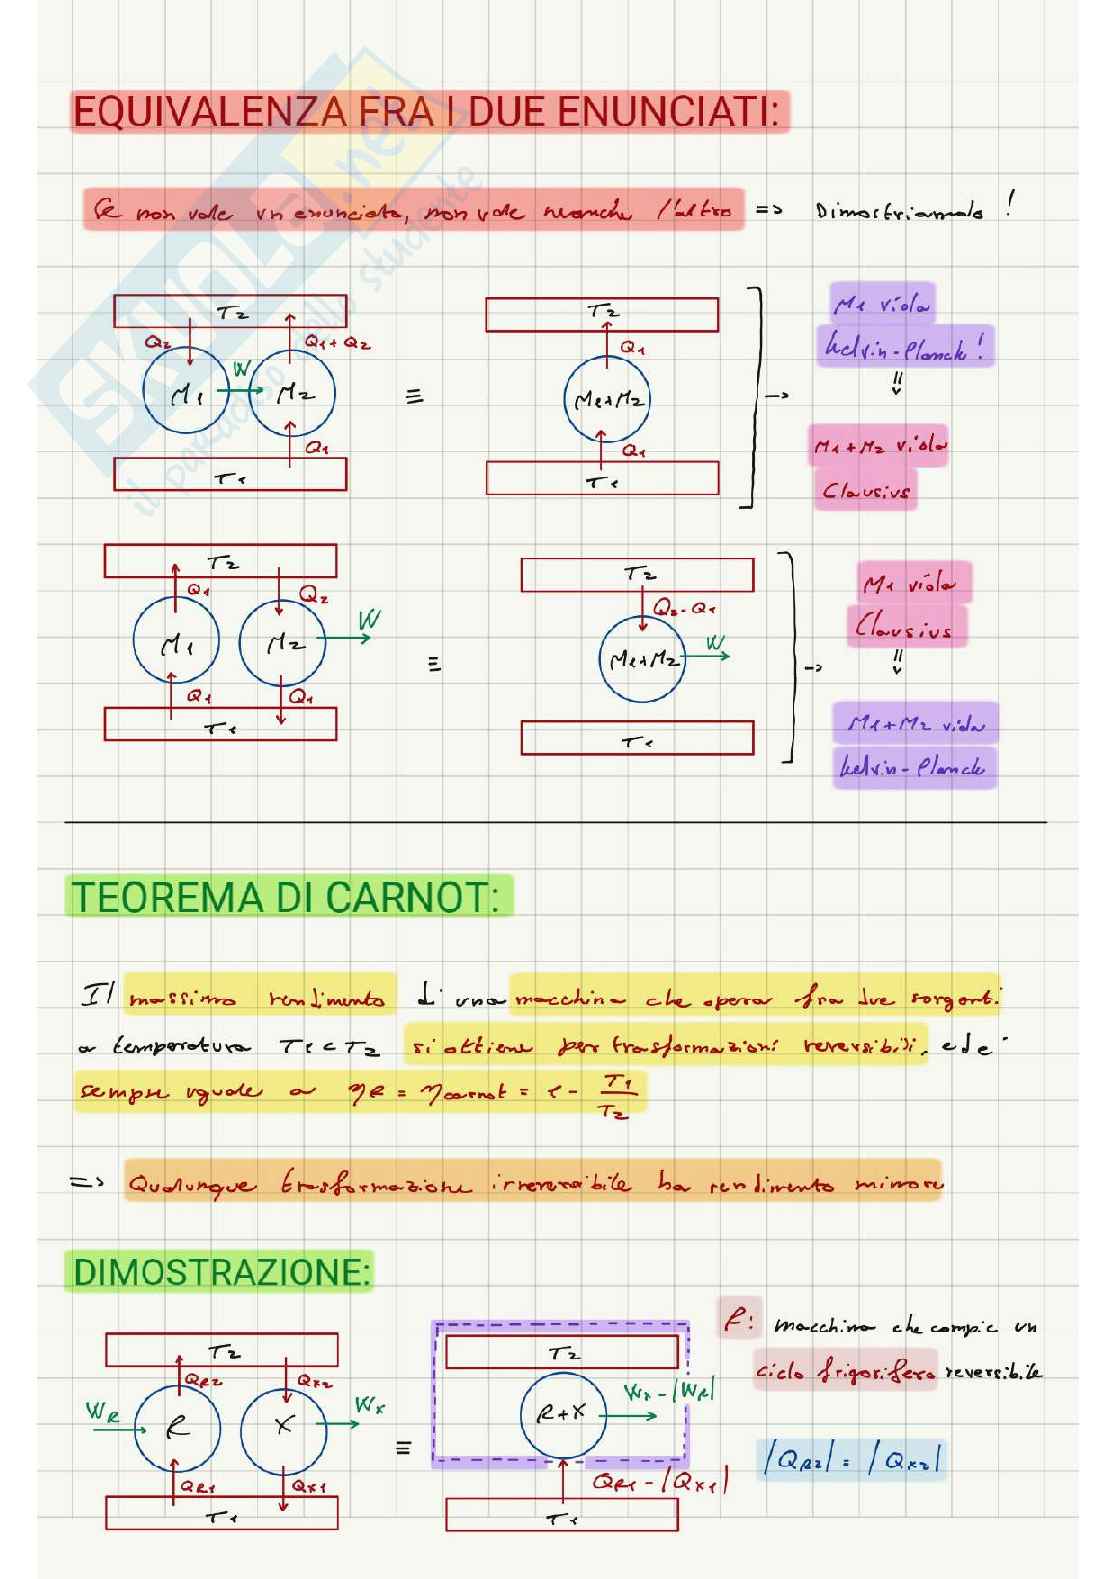 EQUIVALENZA FRA I DUE ENUNCIATI:
Se non vale un enunciato, non vale neanche l'altro => Dimostriamolo!
T2 T2
Q2 Q1+Q2 Q1
M1 W M2 ≡ M1+M2
Q1 Q1
T1 T1
→ M1 viola
kelvin-Planck!
⇓
M1+M2 viola
Clausius
T2 T2
Q1 Q2 Q2-Q1
M1 M2 W ≡ M1+M2 W
Q1 Q1
T1 T1
→ M1 viola
Clausius
⇓
M1+M2 viola
kelvin-Planck
TEOREMA DI CARNOT:
Il massimo rendimento di una macchina che opera fra due sorgenti
a temperatura T1<T2 si ottiene per trasformazioni reversibili, ed e'
sempre uguale a ηR = ηcarnot = 1 - T1/T2
=> Qualunque trasformazione irreversibile ha rendimento minore
DIMOSTRAZIONE:
T2 T2
QR2 QX2
WR R X WX ≡ R+X WX-|WR|
QR1 QX1 QR1-|QX1|
T1 T1
R: macchina che compie un
ciclo frigorifero reversibile
|QR2| = |QX2|
SKUOLA.net
il paradiso dello studente